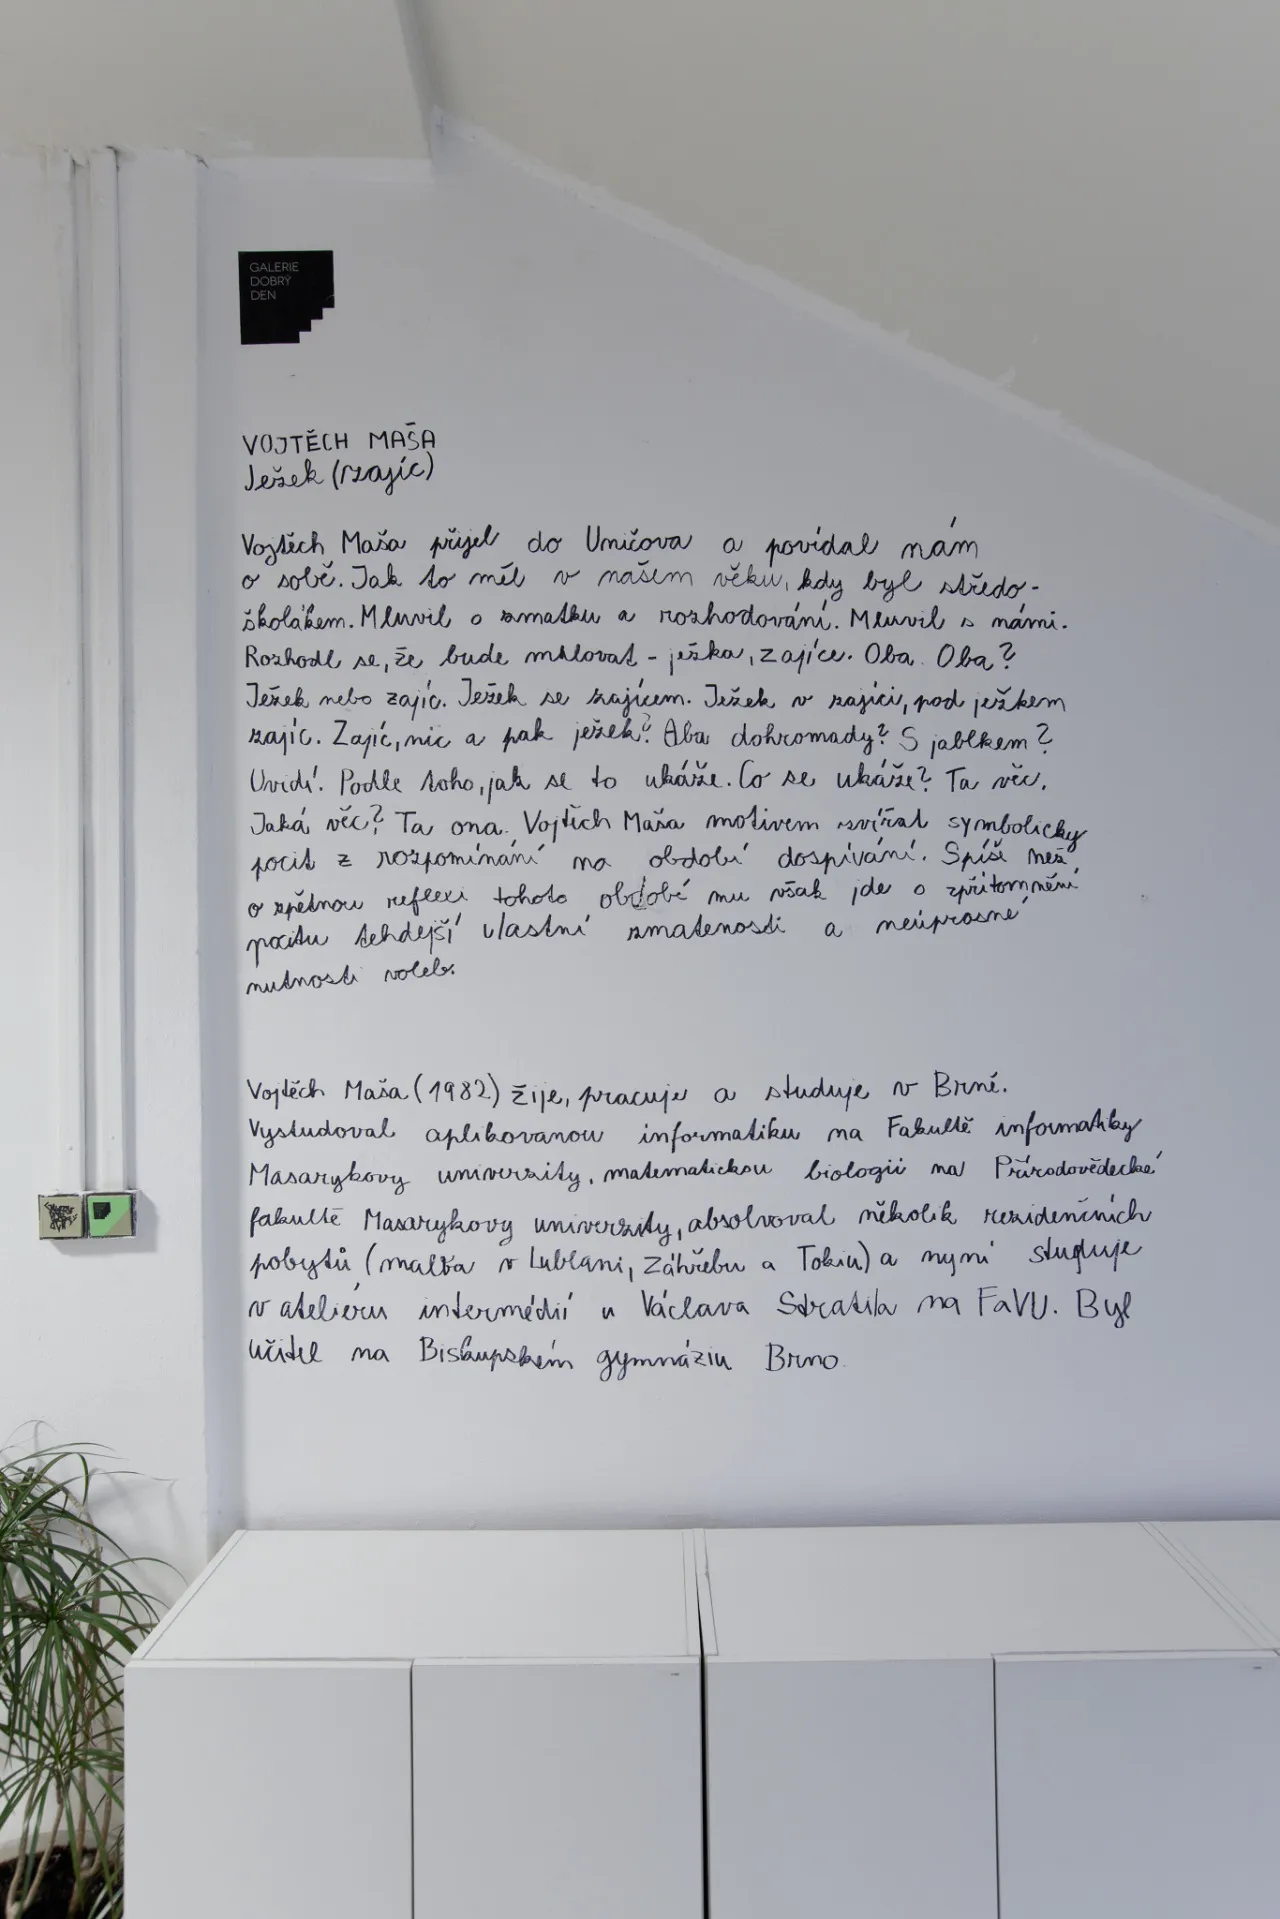 GALERIE
DOBRÝ
DEN
VOJTĚCH MAŠA
Ježek (zajíc)
Vojtěch Maša přijel do Uničova a povídal nám
o sobě. Jak to měl v našem věku, kdy byl středo-
školákem. Mluvil o zmatku a rozhodování. Mluvil s námi.
Rozhodl se, že bude malovat - ježka, zajíce. Oba. Oba?
Ježek nebo zajíc. Ježek se zajícem. Ježek v zajíci, pod ježkem
zajíc. Zajíc, nic a pak ježek? Aba dohromady? S jablkem?
Uvidí. Podle toho, jak se to ukáže. Co se ukáže? Ta věc.
Jaká věc? Ta ona. Vojtěch Maša motivem zvířat symbolicky
pocit z rozpomínání na období dospívání. Spíše než
o zpětnou reflexi tohoto období mu však jde o zpřítomnění
pocitu tehdejší vlastní zmatenosti a neúprosné
nutnosti voleb.
Vojtěch Maša (1982) žije, pracuje a studuje v Brně.
Vystudoval aplikovanou informatiku na Fakultě informatiky
Masarykovy univerzity, matematickou biologii na Přírodovědecké
fakultě Masarykovy univerzity, absolvoval několik rezidenčních
pobytů (malba v Lublani, Záhřebu a Tokiu) a nyní studuje
v ateliéru intermédií u Václava Stratila na FaVU. Byl
učitel na Biskupském gymnáziu Brno.